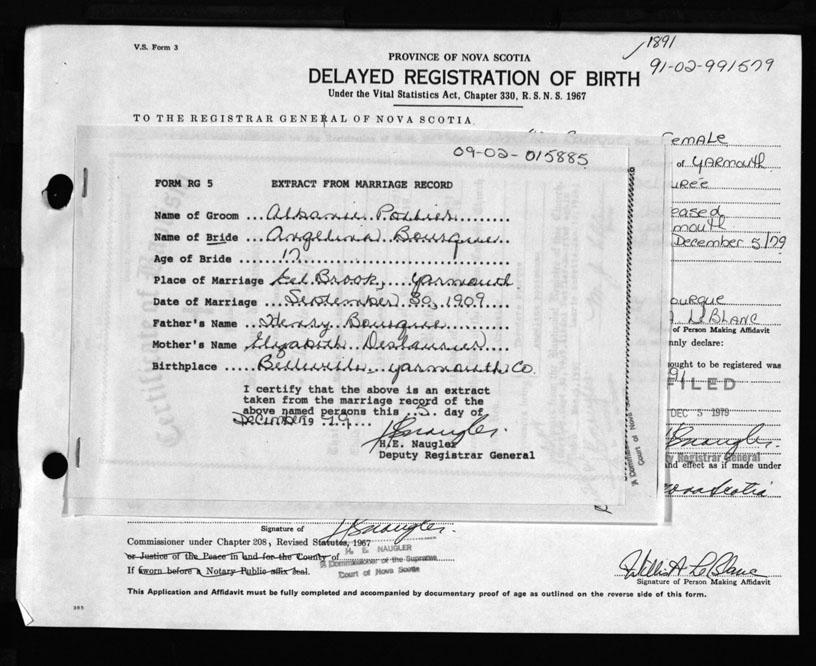 V.S. Form 3
1891
91-02-991579
PROVINCE OF NOVA SCOTIA
DELAYED REGISTRATION OF BIRTH
Under the Vital Statistics Act, Chapter 330, R.S.N.S. 1967
TO THE REGISTRAR GENERAL OF NOVA SCOTIA
FEMALE
of YARMOUTH
December 5/79
LeBLANC
of Person Making Affidavit
declare:
ought to be registered was
FILED
DEC 5 1979
Registrar General
and effect as if made under
Nova Scotia
09-02-015885
FORM RG 5 EXTRACT FROM MARRIAGE RECORD
Name of Groom ... Albanie Pottier
Name of Bride ... Angelina Bourque
Age of Bride ... 17
Place of Marriage Eel Brook, Yarmouth
Date of Marriage ... September 30, 1909
Father's Name ... Henry Bourque
Mother's Name Elizabeth Deslaurier
Birthplace ..... Belleville, Yarmouth Co.
I certify that the above is an extract
taken from the marriage record of the
above named persons this ..5. day of
December 19 79....
H.E. Naugler
H.E. Naugler
Deputy Registrar General
Signature of H.E. Naugler
Commissioner under Chapter 208, Revised Statutes, 1967
or Justice of the Peace in and for the County of
H. E. NAUGLER
A Commissioner of the Supreme
Court of Nova Scotia
If sworn before a Notary Public affix seal.
Willis A. LeBlanc
Signature of Person Making Affidavit
This Application and Affidavit must be fully completed and accompanied by documentary proof of age as outlined on the reverse side of this form.